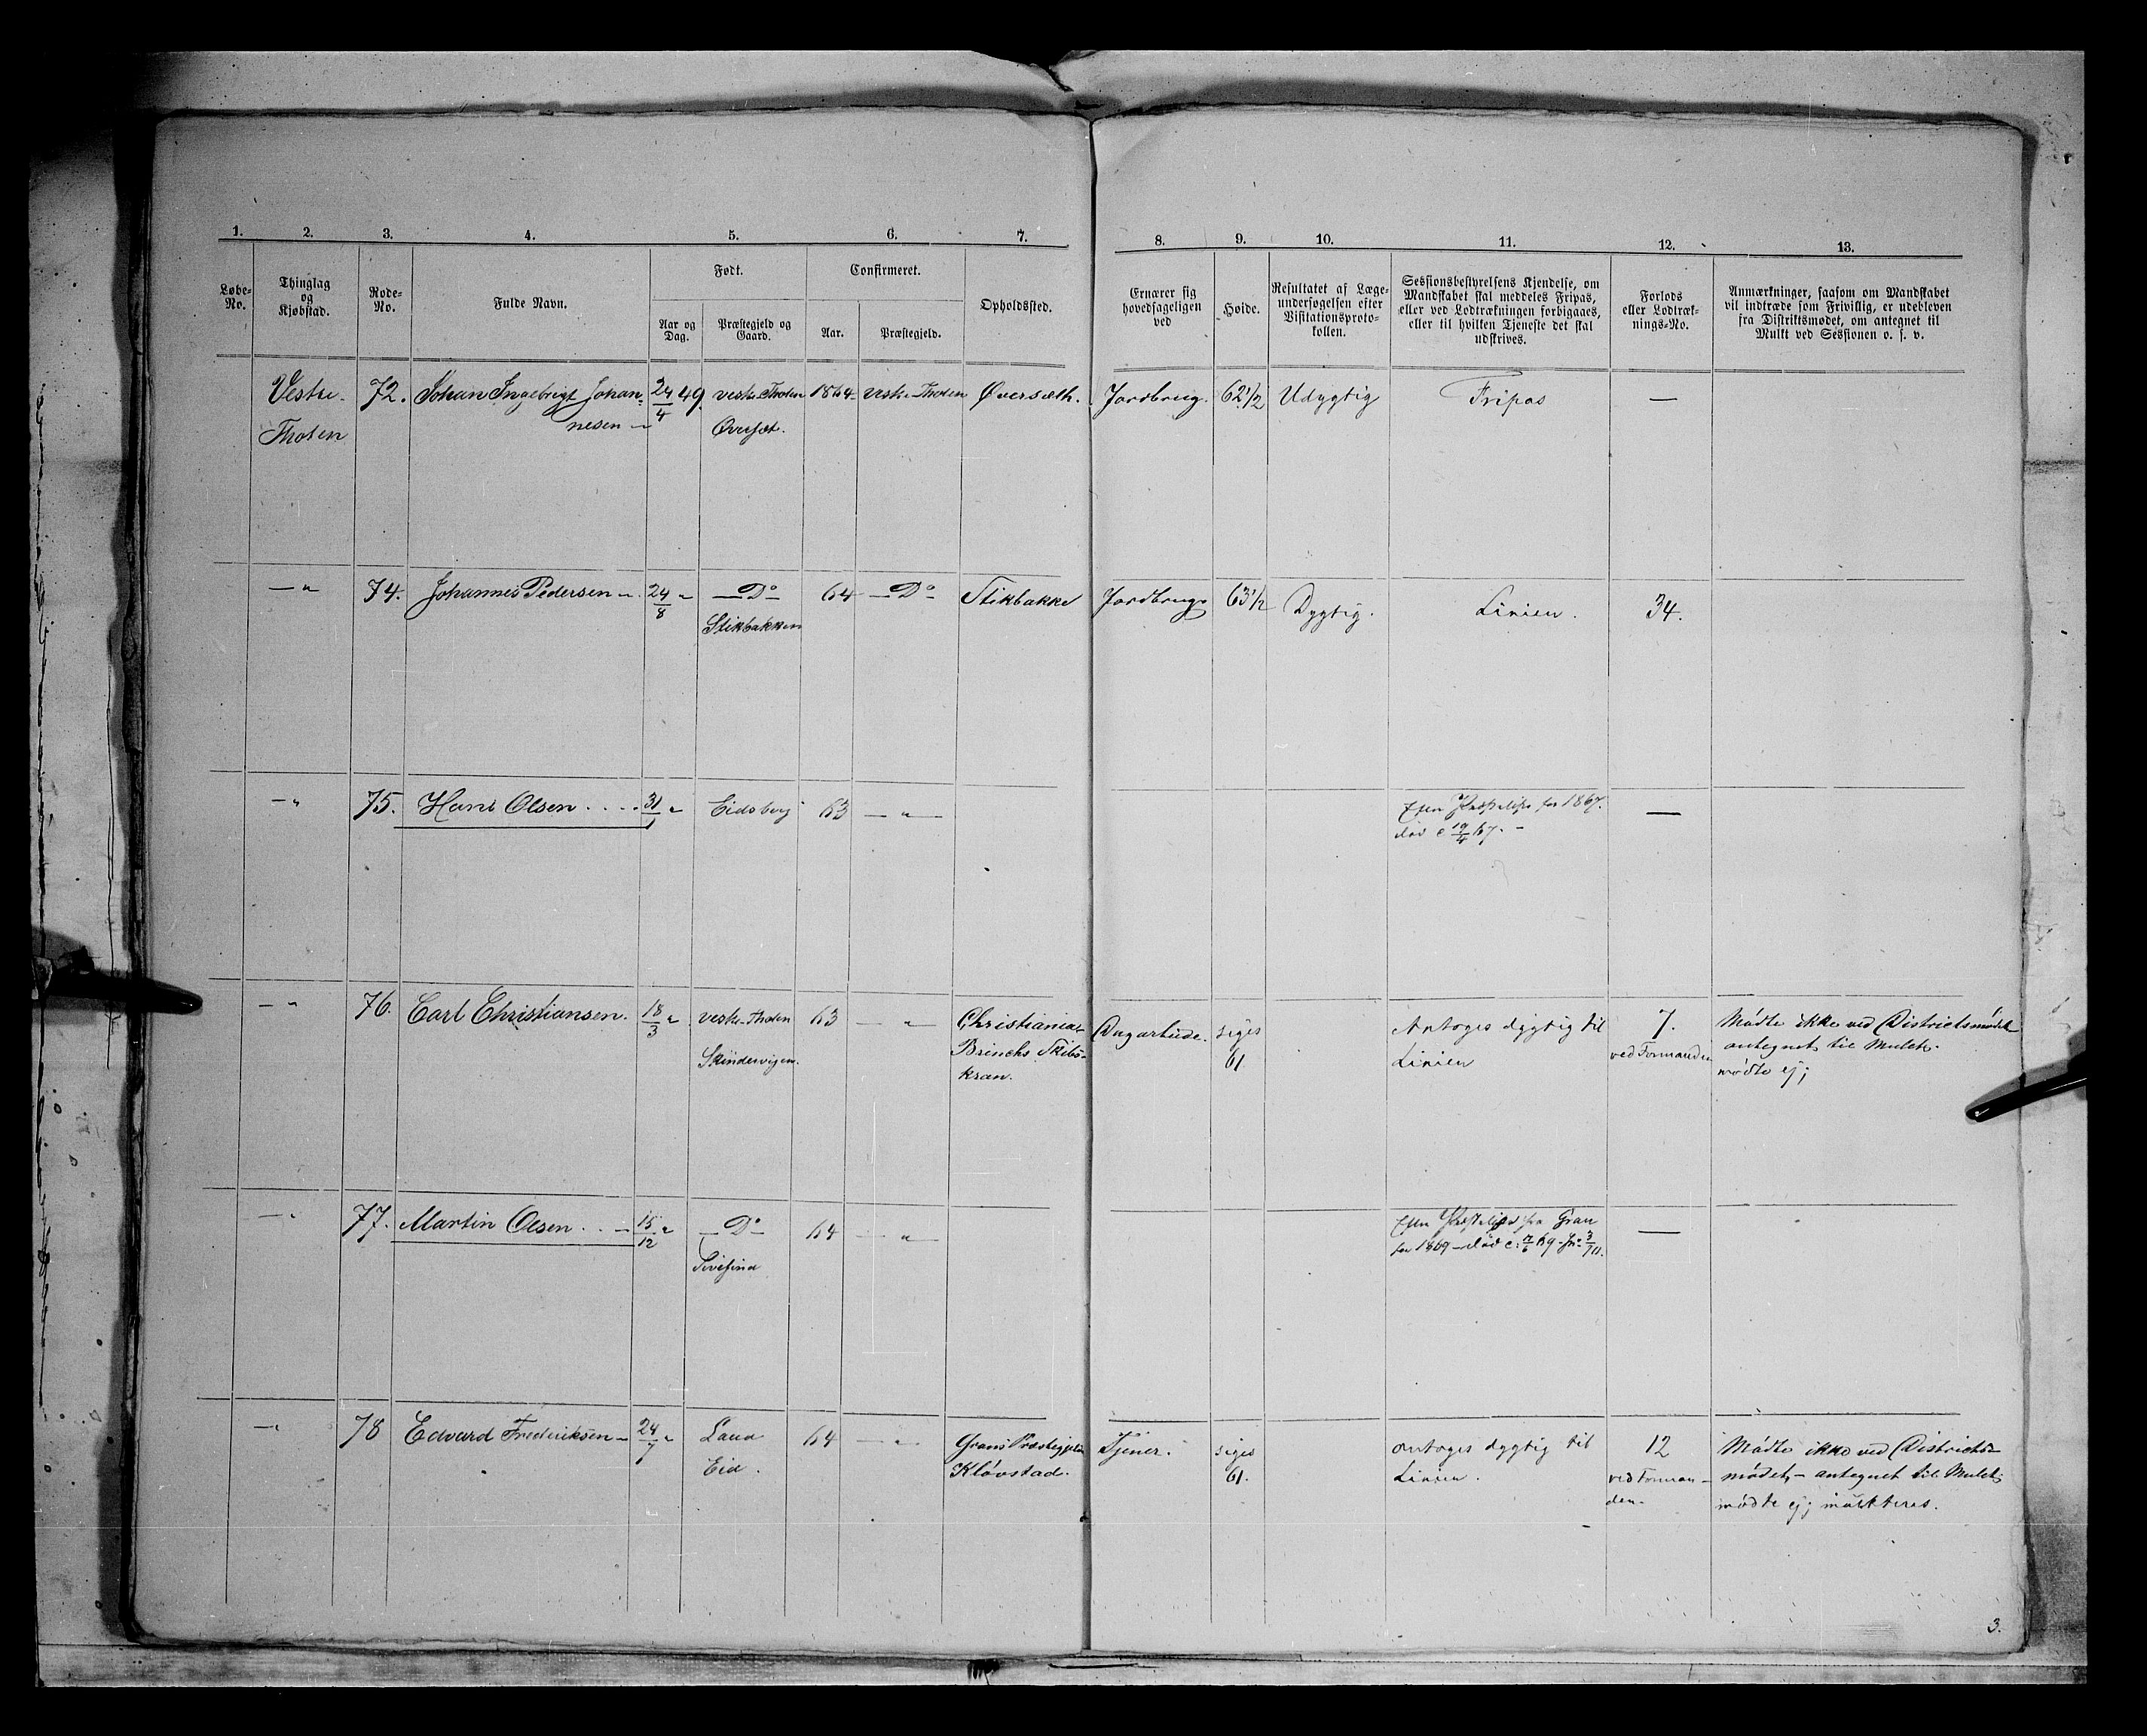 1. 2. 3. 4. 5. 6. 7. 8. 9. 10. 11. 12. 13.
Løbe-No.
Thinglag og Kjøbstad.
Rode-No.
Fulde Navn.
Født.
Aar og Dag.
Præstegjeld og Gaard.
Confirmeret.
Aar.
Præstegjeld.
Opholdssted.
Ernærer sig hovedsageligen ved
Høide.
Resultatet af Læge-undersøgelsen efter Visitationsproto-kollen.
Sessionsbestyrelsens Kjendelse, om Mandskabet skal meddeles Fripas, eller ved Lodtrækningen forbigaaes, eller til hvilken Tjeneste det skal udskrives.
Forlods eller Lodtræk-nings-No.
Anmærkninger, saasom om Mandskabet vil indtræde som Frivillig, er udebleven fra Distriktsmødet, om antegnet til Mulkt ved Sessionen o. s. v.
Vestre 72. Johan Ingebrigt Johan- 24/4 49. vestre Thoten 1864 vestre Thoten Øversæth. Jordbrug. 62 1/2 Udygtig Fripas —
Thoten nesen — Øversæt.
—" 74. Johannes Pedersen — 24/8 " — Do — 64 — Do — Stikbakke Jordbrug. 63 1/2 Dygtig. Linien. 34.
Stikbakken
—" 75. Hans Olsen .... 31/1 " Eidsberg 63 — " — Efter Præsteliste for 1867. —
død 19/4 67. —
—" 76. Carl Christiansen. 18/3 " vestre Thoten 63 — " — Christiania, Dagarbeide. siges Antages dygtig til 7. Mødte ikke ved Districtsmødet
Brinchs Skibs- 61 Linien ved Formanden antegnet til Mulct.
kran. mødte ej;
—" 77. Martin Olsen ... — 15/12 " — Do — 64 — " — Efter Præsteliste fra Gran —
for 1869 — død 69
—" 78 Edvard Frederiksen — 24/7 " Land 64 — " — Grans Præstegjeld Tjener. siges antages dygtig til 12 Mødte ikke ved Districts-
Eid. Kløvstad. 61. Linien. ved Forman- mødet, — antegnet til Mulct;
den. mødte ej; mulkteres.
3.